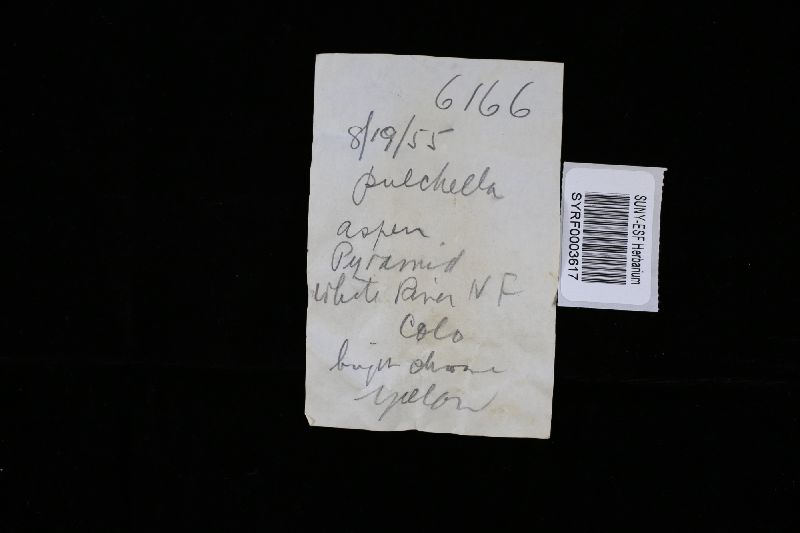 6166
8/19/55
pulchella
aspen
Pyramid
White River N F
Colo
bright chrome
yellow
SUNY-ESF Herbarium
SYRF0003617